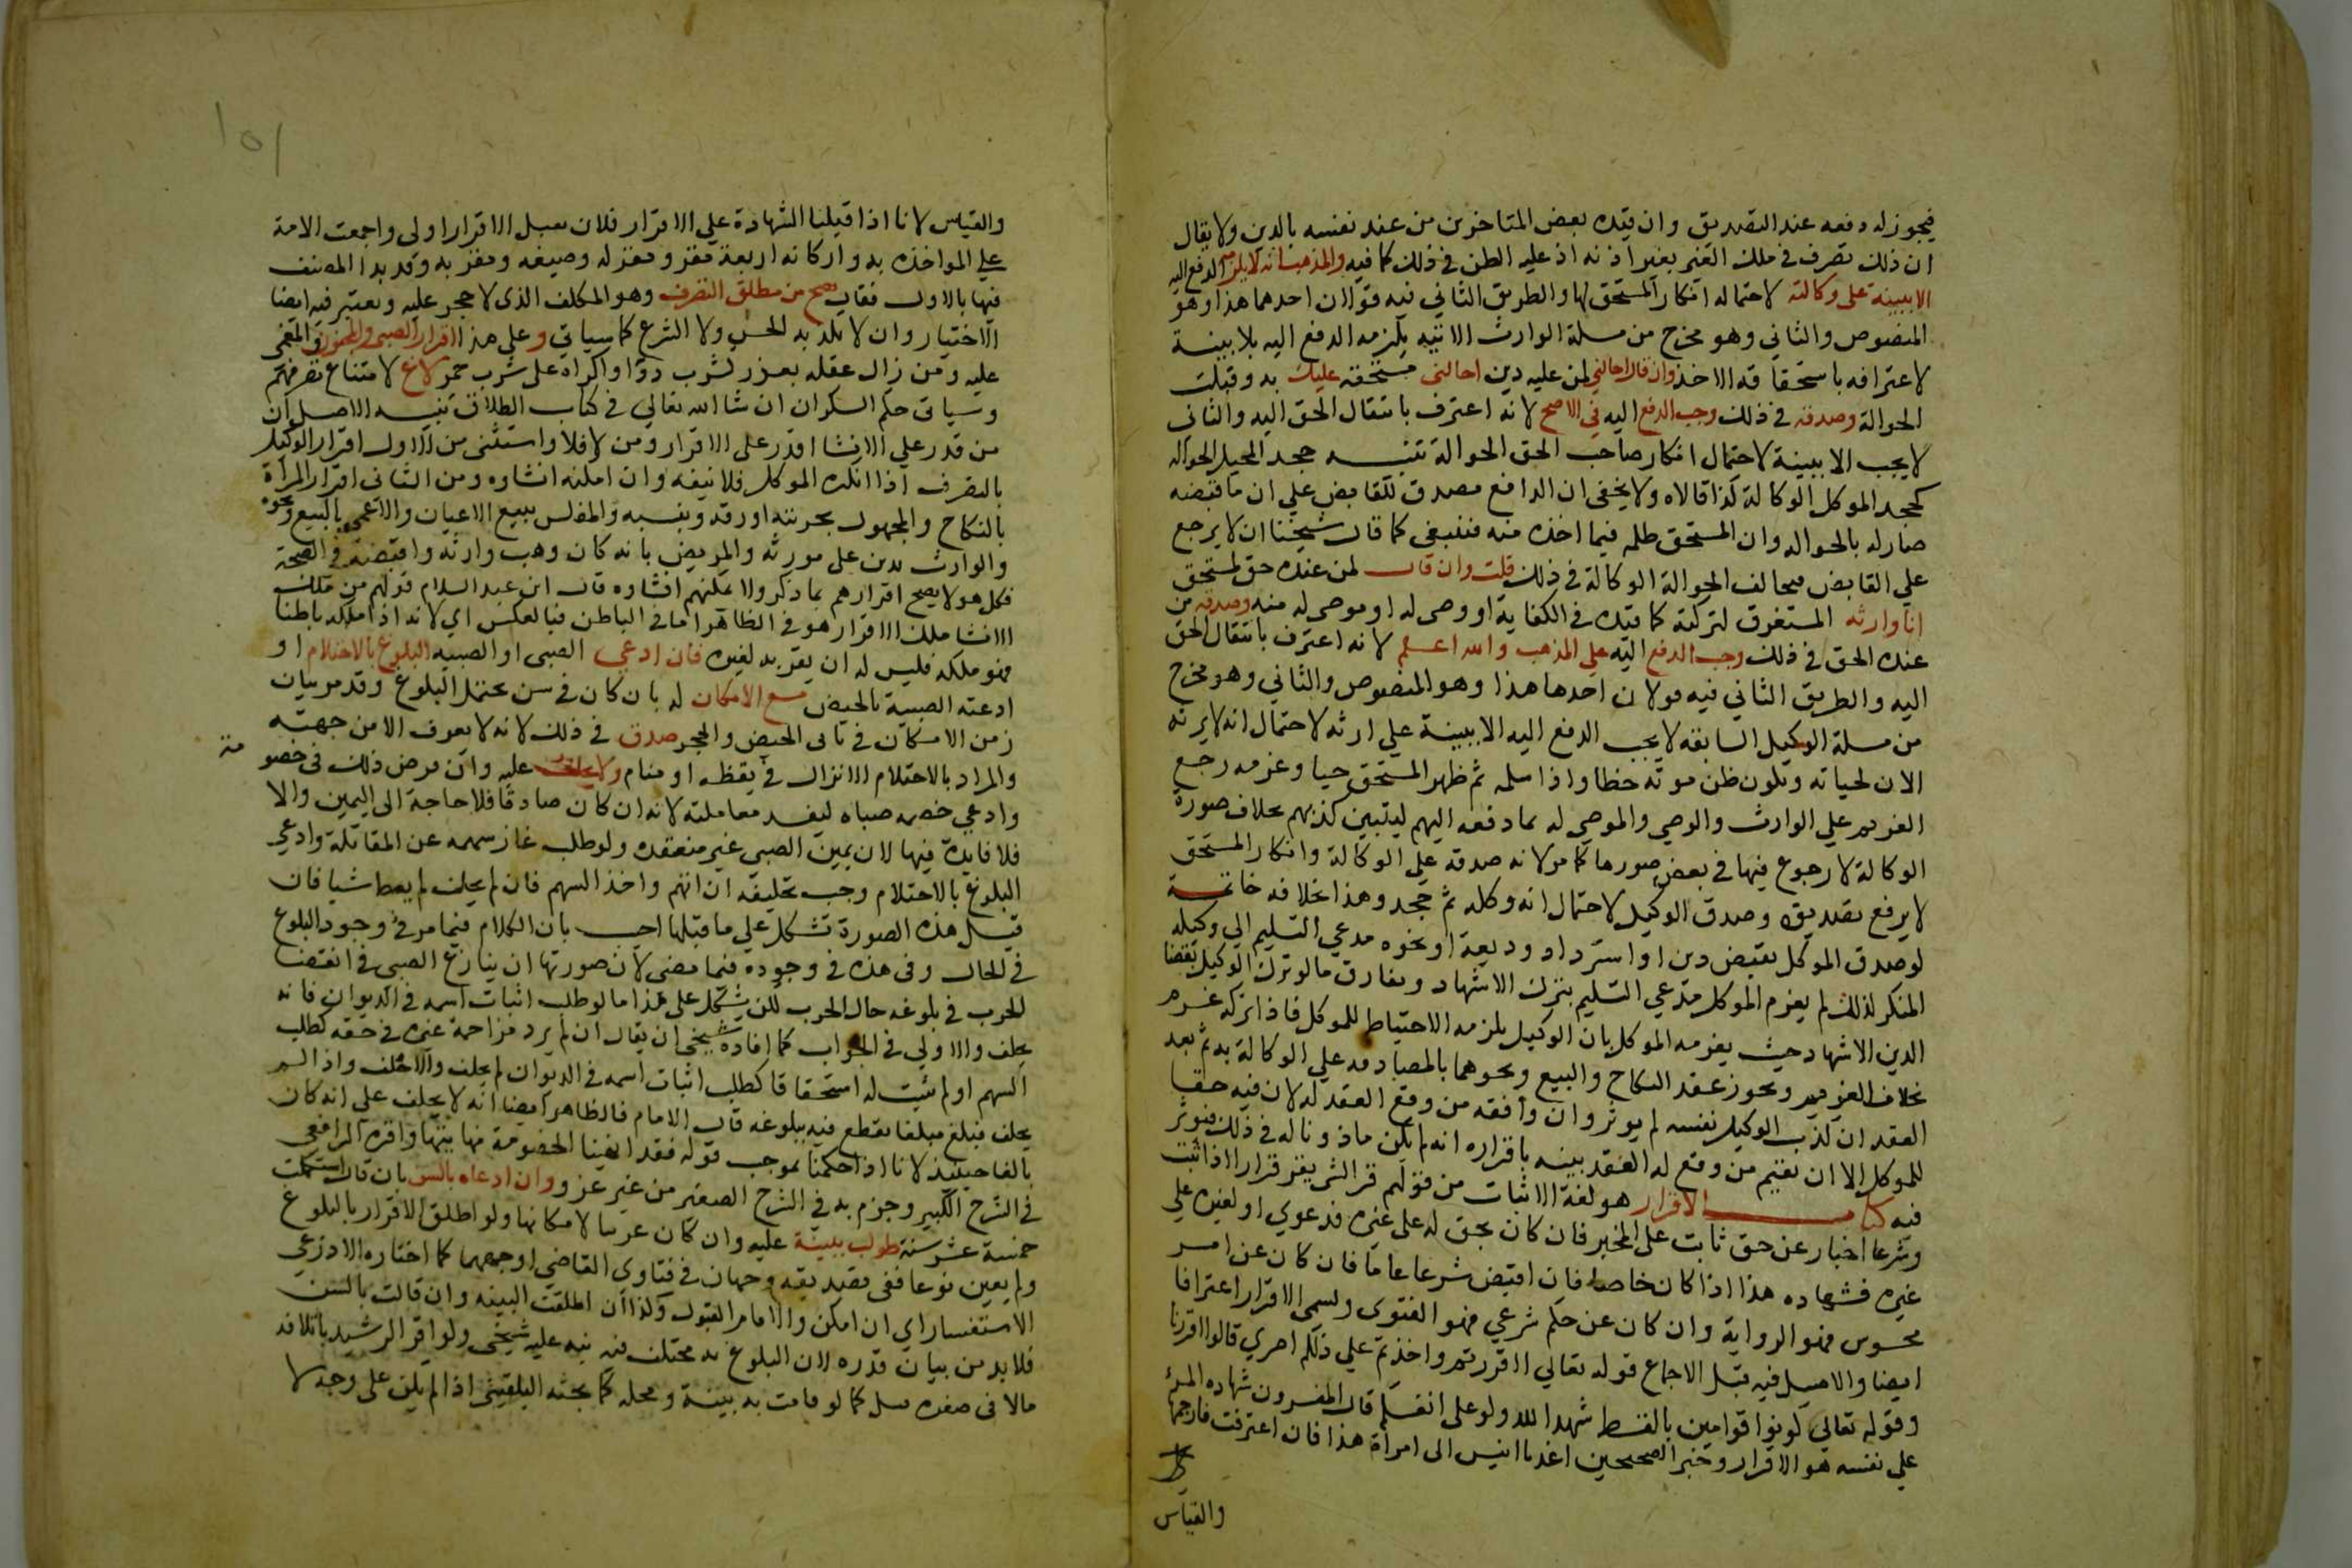 فيجوز له دفعه عند التصديق وان قيده بعض المتاخرين من عند نفسه بالدين ولا يقال
ان ذلك تصرف في ملك الغير بغير اذنه اذ عليه الطن في ذلك كما فيه والمذهب انه لا يلزمه الدفع اليه
الا ببينة على وكالته لاحتماله انكار المستحق لها والطريق الثاني فيه قولان احدهما هذا وهو
المنصوص والثاني وهو مخرج من مسلة الوارث الاتيه يلزمه الدفع اليه بلا بينة
لاعترافه باستحقاقه الاخذ وان قال احالني لمن عليه دين احالني مستحقه عليك به وقبلت
الحوالة وصدقه في ذلك وجب الدفع اليه في الاصح لانه اعترف بانتقال الحق اليه والثاني
لا يجب الا ببينة لاحتمال انكار صاحب الحق الحوالة تنبيه جحد المحيل الحواله
كجحد الموكل الوكالة كذا قالاه ولا يخفى ان الدافع مصدق للقابض علي ان ما قبضه
صار له بالحواله وان المستحق ظلمه فيما اخذه منه فينبغي كما قال شيخنا ان لا يرجع
علي القابض فيخالف الحوالة الوكالة في ذلك قلت وان قال لمن عنده حق لمستحق
انا وارثه المستغرق لتركته كما قيده في الكفاية او وصى له او موصى له منه وصدقه من
عنده الحق في ذلك وجب الدفع اليه علي المذهب والله اعلم لانه اعترف بانتقال الحق
اليه والطريق الثاني فيه قولان احدهما هذا وهو المنصوص والثاني وهو مخرج
من مسلة الوكيل السابقه لا يجب الدفع اليه الا ببينة علي ارثه لاحتمال انه لا يرثه
الان لحياته وتكون ظن موته خطا واذا سلمه ثم ظهر المستحق حيا وغرمه رجع
الغريم علي الوارث والوصي والموصي له بما دفعه اليهم ليتبين كذبهم بخلاف صورة
الوكالة لا رجوع فيها في بعض صورها كما مر لانه صدقه علي الوكالة وانكار المستحق
لا يرفع تصديقه وصدق الوكيل لاحتمال انه وكله ثم جحد وهذا بخلافه خاتمة
لو صدق الموكل بقبض دين او استرداد وديعة او نحوه مدعي التسليم الي وكيله
المنكر لذلك لم يغرم الموكل مدعي التسليم بترك الاشهاد ويفارق ما لو ترك الوكيل بقضا
الدين الاشهاد حيث يغرمه الموكل بان الوكيل يلزمه الاحتياط للموكل فاذا تركه غرم
بخلاف الغريم ويجوز عقد النكاح والبيع ونحوهما بالمصادقه علي الوكالة به ثم بعد
العقد ان كذب الوكيل نفسه لم يوثر وان وافقه من وقع العقد له لان فيه حقا
للموكل الا ان يقيم من وقع له العقد بينه باقراره انه لم يكن ماذونا له في ذلك فيوثر
فيه كتاب الاقرار هو لغة الاثبات من قولهم قر الشي يقر قرارا اذا ثبت
وشرعا اخبار عن حق ثابت علي المخبر فان كان بحق له على غيره فدعوي او لغيره علي
غيره فشهاده هذا اذا كان خاصا فان اقتض شرعا عاما فان كان عن امر
محسوس فهو الرواية وان كان عن حكم شرعي فهو الفتوى ويسمى الاقرار اعترافا
ايضا والاصل فيه قبل الاجماع قوله تعالي ااقررتم واخذتم علي ذلكم اصري قالوا اقررنا
وقوله تعالى كونوا قوامين بالقسط شهدا لله ولو على انفسكم قال المفسرون شهاده المرء
علي نفسه هو الاقرار وخبر الصحيحين اغد يا انيس الى امراة هذا فان اعترفت فارجمها
والقياس
والقياس لانا اذا قبلنا الشهادة علي الاقرار فلان نقبل الاقرار اولي واجمعت الامة
على المواخذه به واركانه اربعة مقر ومقر له وصيغه ومقر به وقد بدا المصنف
فيها بالاول فقال يصح من مطلق التصرف وهو المكلف الذى لا حجر عليه ويعتبر فيه ايضا
الاختيار وان لا يكذبه الحس ولا الشرع كما سياتي وعلي هذا اقرار الصبي والمجنون والمغمى
عليه ومن زال عقله بعذر لشرب دوا او اكراه على شرب خمر لاغ لامتناع تصرفهم
وسياتي حكم السكران ان شا الله تعالي في كتاب الطلاق تنبيه الاصل ان
من قدر علي الانشا قدر على الاقرار ومن لا فلا واستثنى من الاول اقرار الوكيل
بالتصرف اذا انكره الموكل فلا نيفه وان امكنه انشاوه ومن الثاني اقرار المراة
بالنكاح والمجهول بحريته او رقه وبنسبه والمفلس ببيع الاعيان والاعمى بالبيع ونحوه
والوارث بدين على مورثه والمريض بانه كان وهب وارثه واقبضه في الصحة
فكل هولا يصح اقرارهم بما ذكر ولا يمكنهم انشاوه قال ابن عبد السلام قولهم من ملك
الانشا ملك الاقرار هو في الظاهر اما في الباطن فبالعكس اي لانه اذا ملكه باطنا
فهو ملكه فليس له ان يقر به لغيره فان ادعي الصبى او الصبيه البلوغ بالاحتلام او
ادعته الصبية بالحيض مع الامكان له بان كان في سن يحتمل البلوغ وقد مر بيان
زمن الامكان في بابى الحيض والحجر صدق في ذلك لانه لا يعرف الا من جهته
والمراد بالاحتلام الانزال في يقظه او منام ولا يحلف عليه وان فرض ذلك في خصومة
وادعي خصمه صباه ليفسد معاملته لانه ان كان صادقا فلا حاجة الى اليمين والا
فلا فايدة فيها لان يمين الصبي غير منعقده ولو طلب غاز سهمه عن المقاتلة وادعي
البلوغ بالاحتلام وجب تحليفه ان اتهم واخذ السهم فان لم يحلف لم يعط شيا فان
قيل هذه الصورة تشكل علي ما قبلها اجيب بان الكلام فيما مر في وجود البلوغ
في الحال وفي هذه في وجوده فيما مضي لان صورتها ان ينازع الصبي في انقضا
الحرب في بلوغه حال الحرب لكن يشكل على هذا ما لو طلب اثبات اسمه في الديوان فانه
يحلف والاولي في الجواب كما افاده شيخي ان يقال ان لم يرد مزاحمة غيره في حقه كطلب
السهم او لم يثبت له استحقاقا كطلب اثبات اسمه في الديوان لم يحلف والا حلف واذا لم
يحلف فبلغ مبلغا يقطع فيه ببلوغه قال الامام فالظاهر ايضا انه لا يحلف علي انه كان
بالغا حينيذ لانا اذا حكمنا بموجب قوله فقد انهينا الخصومة نهايتها واقره الرافعي
في الشرح الكبير وجزم به في الشرح الصغير من غير عزو وان ادعاه بالسن بان قال استكملت
خمسة عشر سنة طولب ببينة عليه وان كان غريبا لامكانها ولو اطلق الاقرار بالبلوغ
ولم يعين نوعا ففي تصديقه وجهان في فتاوى القاضي اوجههما كما اختاره الاذرعي
الاستفسار اي ان امكن والا فالقبول وكذا ان اطلقت البينه وان قالت بالسن
فلا بد من بيان قدره لان البلوغ به مختلف فيه نبه عليه شيخي ولو اقر الرشيد باتلافه
مالا في صغره قبل كما لو قامت به بينة ومحله كما بحثه البلقيني اذا لم يكن على وجه لا